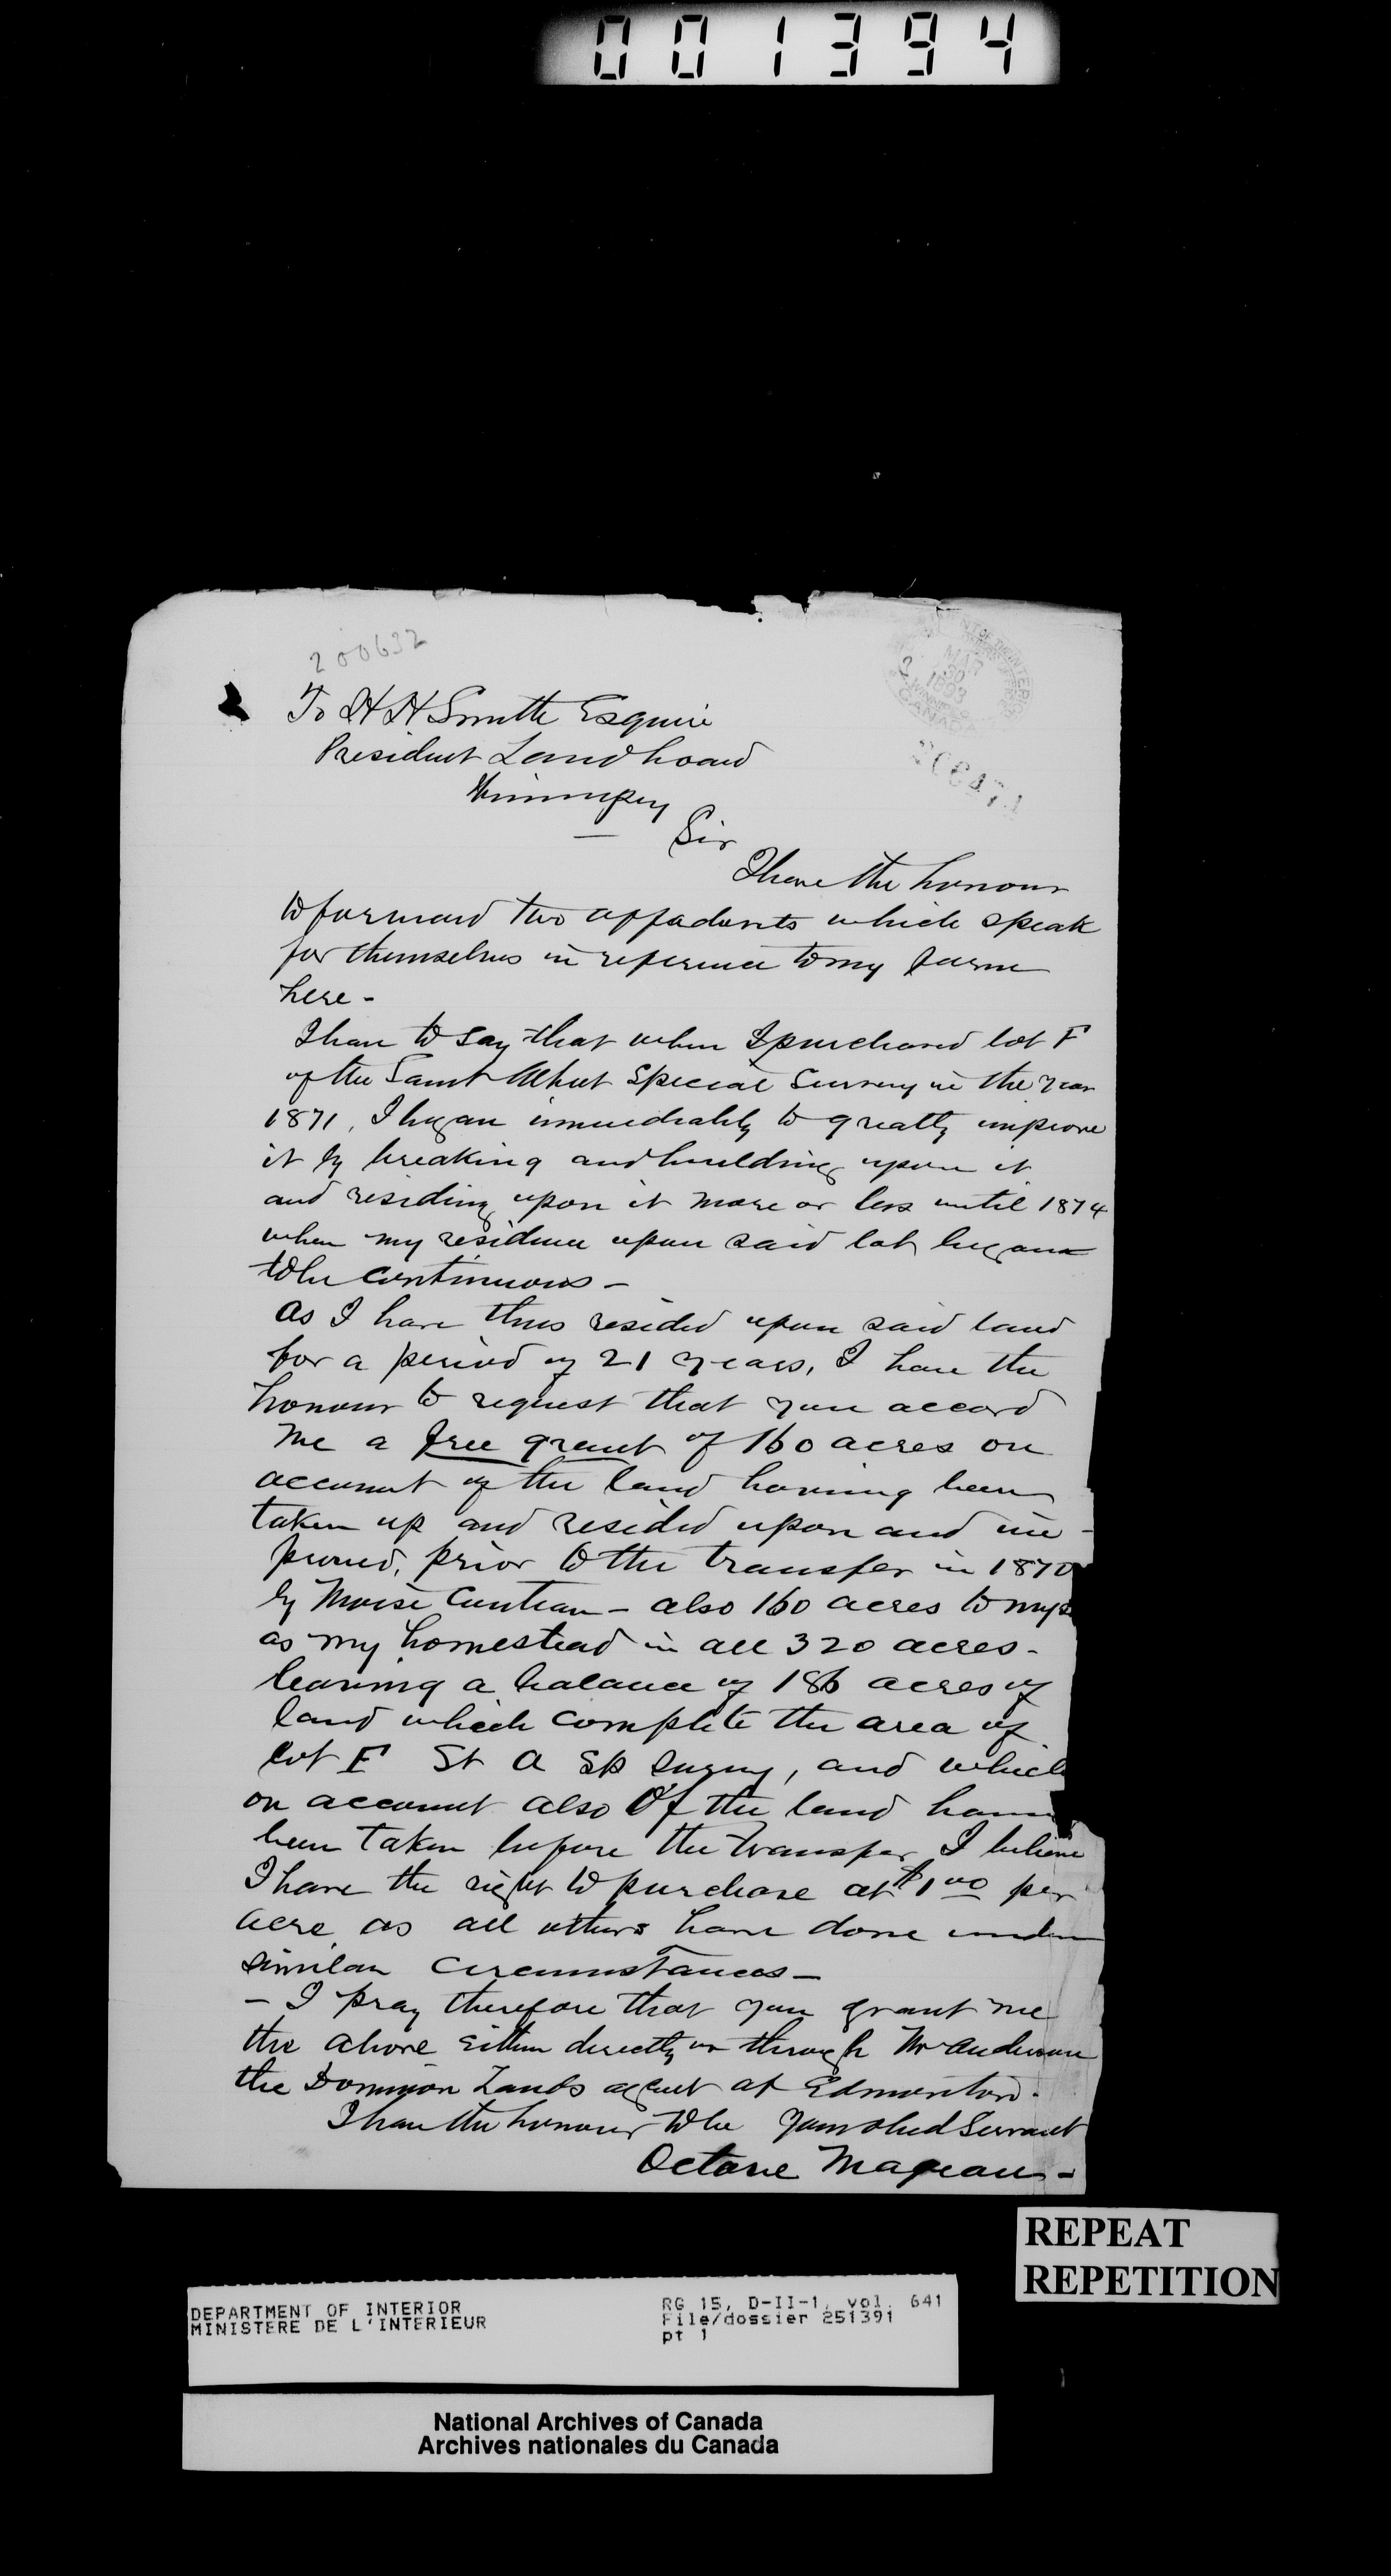 001394
200632
MAR
30
1893
WINNIPEG
CANADA
To H H Smith Esquire
President Land board
Winnipeg
Sir
I have the honour
to forward two affadavits which speak
for themselves in reference to my farm
here -
I have to say that when I purchased lot F
of the Saint Albert Special Survey in the year
1871, I began immediately to greatly improve
it by breaking and building upon it
and residing upon it more or less until 1874
when my residence upon said lot began
to be continuous -
As I have thus resided upon said land
for a period of 21 years, I have the
honour to request that you accord
me a free grant of 160 acres on
account of the land having been
taken up and resided upon and im-
proved, prior to the transfer in 1870
by Moise - also 160 acres to mys
as my homestead in all 320 acres -
leaving a balance of 186 acres of
land which complete the area of
lot F St A Sp Survey, and which
on account also of the land havin
been taken before the transfer I believe
I have the right to purchase at $1.00 per
acre as all others have done under
similar circumstances -
- I pray therefore that you grant me
the above either directly or through Mr Anderson
the Dominion Lands agent at Edmonton.
I have the honour to be your obed Servant
Octave Majeau -
REPEAT
REPETITION
DEPARTMENT OF INTERIOR
MINISTERE DE L'INTERIEUR
RG 15, D-II-1, vol. 641
File/dossier 251391
pt 1
National Archives of Canada
Archives nationales du Canada